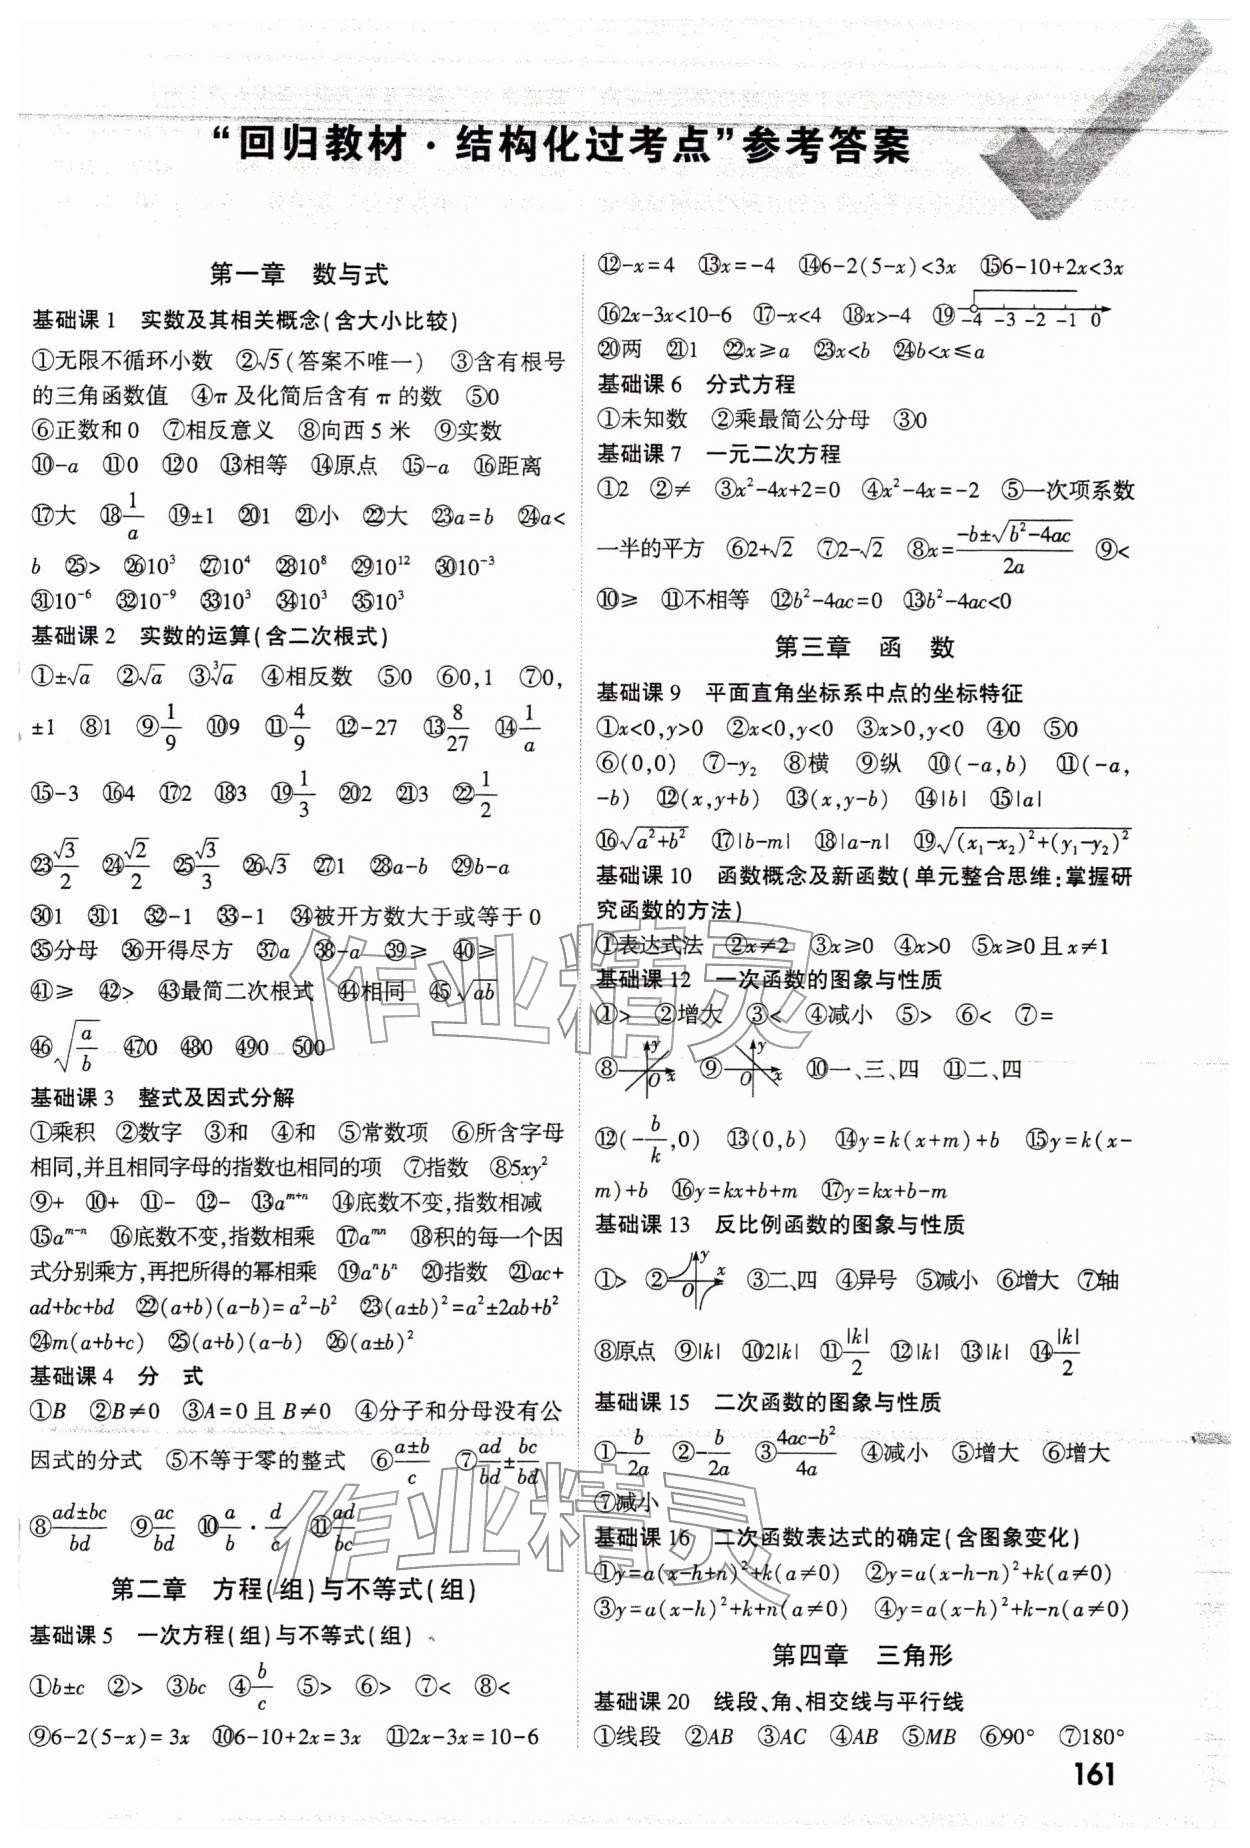 “回归教材·结构化过考点”参考答案
第一章 数与式
基础课1 实数及其相关概念(含大小比较)
①无限不循环小数 ②√5(答案不唯一) ③含有根号
的三角函数值 ④π及化简后含有π的数 ⑤0
⑥正数和0 ⑦相反意义 ⑧向西5米 ⑨实数
⑩-a ⑪0 ⑫0 ⑬相等 ⑭原点 ⑮-a ⑯距离
⑰大 ⑱1/a ⑲±1 ⑳1 ㉑小 ㉒大 ㉓a=b ㉔a<
b ㉕> ㉖10³ ㉗10⁴ ㉘10⁸ ㉙10¹² ㉚10⁻³
㉛10⁻⁶ ㉜10⁻⁹ ㉝10³ ㉞10³ ㉟10³
基础课2 实数的运算(含二次根式)
①±√a ②√a ③∛a ④相反数 ⑤0 ⑥0,1 ⑦0,
±1 ⑧1 ⑨1/9 ⑩9 ⑪4/9 ⑫-27 ⑬8/27 ⑭1/a
⑮-3 ⑯4 ⑰2 ⑱3 ⑲1/3 ⑳2 ㉑3 ㉒1/2
㉓√3/2 ㉔√2/2 ㉕√3/3 ㉖√3 ㉗1 ㉘a-b ㉙b-a
㉚1 ㉛1 ㉜-1 ㉝-1 ㉞被开方数大于或等于0
㉟分母 ㊱开得尽方 ㊲a ㊳-a ㊴≥ ㊵≥
㊶≥ ㊷> ㊸最简二次根式 ㊹相同 ㊺√ab
㊻√(a/b) ㊼0 ㊽0 ㊾0 ㊿0
基础课3 整式及因式分解
①乘积 ②数字 ③和 ④和 ⑤常数项 ⑥所含字母
相同,并且相同字母的指数也相同的项 ⑦指数 ⑧5xy²
⑨+ ⑩+ ⑪- ⑫- ⑬aᵐ⁺ⁿ ⑭底数不变,指数相减
⑮aᵐ⁻ⁿ ⑯底数不变,指数相乘 ⑰aᵐⁿ ⑱积的每一个因
式分别乘方,再把所得的幂相乘 ⑲aⁿbⁿ ⑳指数 ㉑ac+
ad+bc+bd ㉒(a+b)(a-b)=a²-b² ㉓(a±b)²=a²±2ab+b²
㉔m(a+b+c) ㉕(a+b)(a-b) ㉖(a±b)²
基础课4 分 式
①B ②B≠0 ③A=0且B≠0 ④分子和分母没有公
因式的分式 ⑤不等于零的整式 ⑥(a±b)/c ⑦ad/bd±bc/bd
⑧(ad±bc)/bd ⑨ac/bd ⑩a/b·d/c ⑪ad/bc
第二章 方程(组)与不等式(组)
基础课5 一次方程(组)与不等式(组)
①b±c ②> ③bc ④b/c ⑤> ⑥> ⑦< ⑧<
⑨6-2(5-x)=3x ⑩6-10+2x=3x ⑪2x-3x=10-6
⑫-x=4 ⑬x=-4 ⑭6-2(5-x)<3x ⑮6-10+2x<3x
⑯2x-3x<10-6 ⑰-x<4 ⑱x>-4 ⑲ -4 -3 -2 -1 0
⑳两 ㉑1 ㉒x≥a ㉓x<b ㉔b<x≤a
基础课6 分式方程
①未知数 ②乘最简公分母 ③0
基础课7 一元二次方程
①2 ②≠ ③x²-4x+2=0 ④x²-4x=-2 ⑤一次项系数
一半的平方 ⑥2+√2 ⑦2-√2 ⑧x=(-b±√(b²-4ac))/2a ⑨<
⑩≥ ⑪不相等 ⑫b²-4ac=0 ⑬b²-4ac<0
第三章 函 数
基础课9 平面直角坐标系中点的坐标特征
①x<0,y>0 ②x<0,y<0 ③x>0,y<0 ④0 ⑤0
⑥(0,0) ⑦-y₂ ⑧横 ⑨纵 ⑩(-a,b) ⑪(-a,
-b) ⑫(x,y+b) ⑬(x,y-b) ⑭|b| ⑮|a|
⑯√(a²+b²) ⑰|b-m| ⑱|a-n| ⑲√((x₁-x₂)²+(y₁-y₂)²)
基础课10 函数概念及新函数(单元整合思维:掌握研
究函数的方法)
①表达式法 ②x≠2 ③x≥0 ④x>0 ⑤x≥0且x≠1
基础课12 一次函数的图象与性质
①> ②增大 ③< ④减小 ⑤> ⑥< ⑦=
⑧ y O x ⑨ y O x ⑩一、三、四 ⑪二、四
⑫(-b/k,0) ⑬(0,b) ⑭y=k(x+m)+b ⑮y=k(x-
m)+b ⑯y=kx+b+m ⑰y=kx+b-m
基础课13 反比例函数的图象与性质
①> ② y O x ③二、四 ④异号 ⑤减小 ⑥增大 ⑦轴
⑧原点 ⑨|k| ⑩2|k| ⑪|k|/2 ⑫|k| ⑬|k| ⑭|k|/2
基础课15 二次函数的图象与性质
①-b/2a ②-b/2a ③(4ac-b²)/4a ④减小 ⑤增大 ⑥增大
⑦减小
基础课16 二次函数表达式的确定(含图象变化)
①y=a(x-h+n)²+k(a≠0) ②y=a(x-h-n)²+k(a≠0)
③y=a(x-h)²+k+n(a≠0) ④y=a(x-h)²+k-n(a≠0)
第四章 三角形
基础课20 线段、角、相交线与平行线
①线段 ②AB ③AC ④AB ⑤MB ⑥90° ⑦180°
161
作业精灵
作业精灵